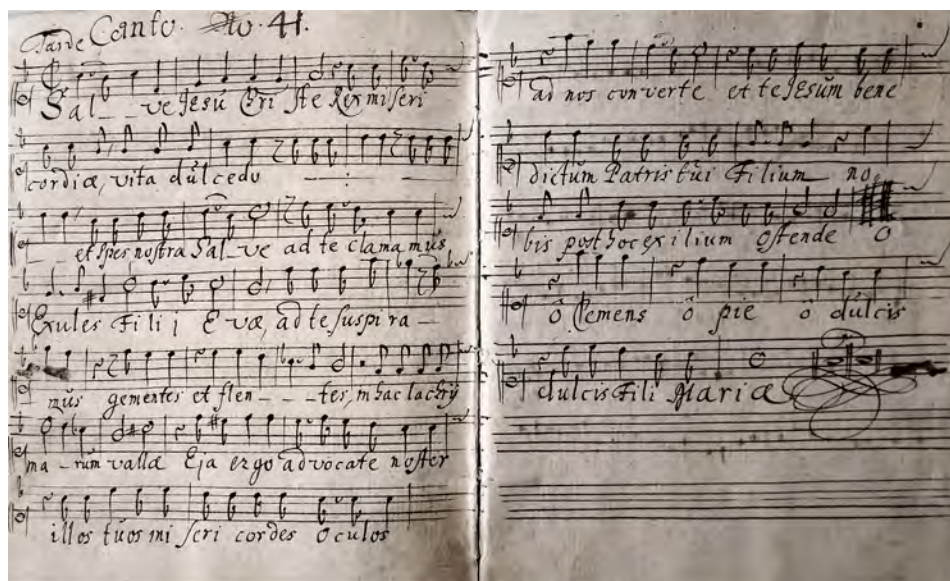 Tarde Canto. No. 41.
Sal - - ve Jesu Christe Rex miseri
cordiæ, vita dulcedo - : -
et spes nostra Sal - ve ad te clamamus,
Exules Filij Evæ, ad te suspira -
mus gementes et flen - - - tes, in hac lachry
ma - rum vallæ Eja ergo advocate noster
illos tuos miseri cordes oculos
ad nos converte et te Jesum bene
dictum Patris tui Filium no
bis post hoc exilium ostende O
ô Clemens ô pie ô dulcis
dulcis Fili Mariæ